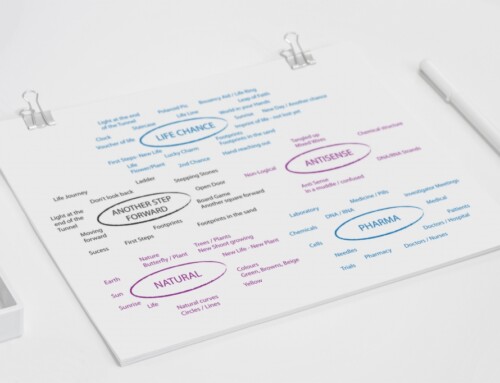 Polaroid Pic
Buoyancy Aid / Life Ring
Leap of Faith
Light at the end
of the Tunnel
Staircase
Life Line
World in your Hands
Clock
Sunrise
New Day / Another chance
Voucher of life
LIFE CHANCE
Imprize of life - not lost yet
Footprints
Footprints in the sand
First Steps- New Life
Lucky Charm
Hand reaching out
Life
Flower/Plant
2nd Chance
Tangled up
Mixed Wires
Chemical structure
ANTISENSE
DNA/RNA Strands
Non-Logical
Anti Sense
In a muddle / confused
Ladder
Stepping Stones
Life Journey
Don't look back
Open Door
Light at the
end of the
Tunnel
ANOTHER STEP
FORWARD
Board Game
Another square forward
Moving
forward
Footprints
Footprints in the sand
Sucess
First Steps
Laboratory
Medicine / Pills
Investigator Meetings
DNA / RNA
Medical
Chemicals
PHARMA
Patients
Cells
Doctors / Hospital
Needles
Doctors / Nurses
Trials
Pharmacy
Trees / Plants
New Shoot growing
Nature
Butterfly / Plant
New Life - New Plant
Earth
NATURAL
Colours
Green, Browns, Beige
Sun
Yellow
Sunrise
Life
Natural curves
Circles / Lines